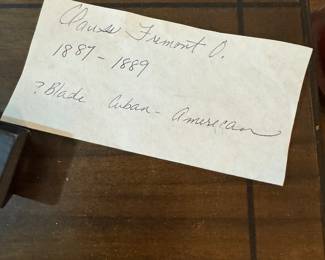 Claude Fremont O.
1887-1889
? Blade Cuban-American